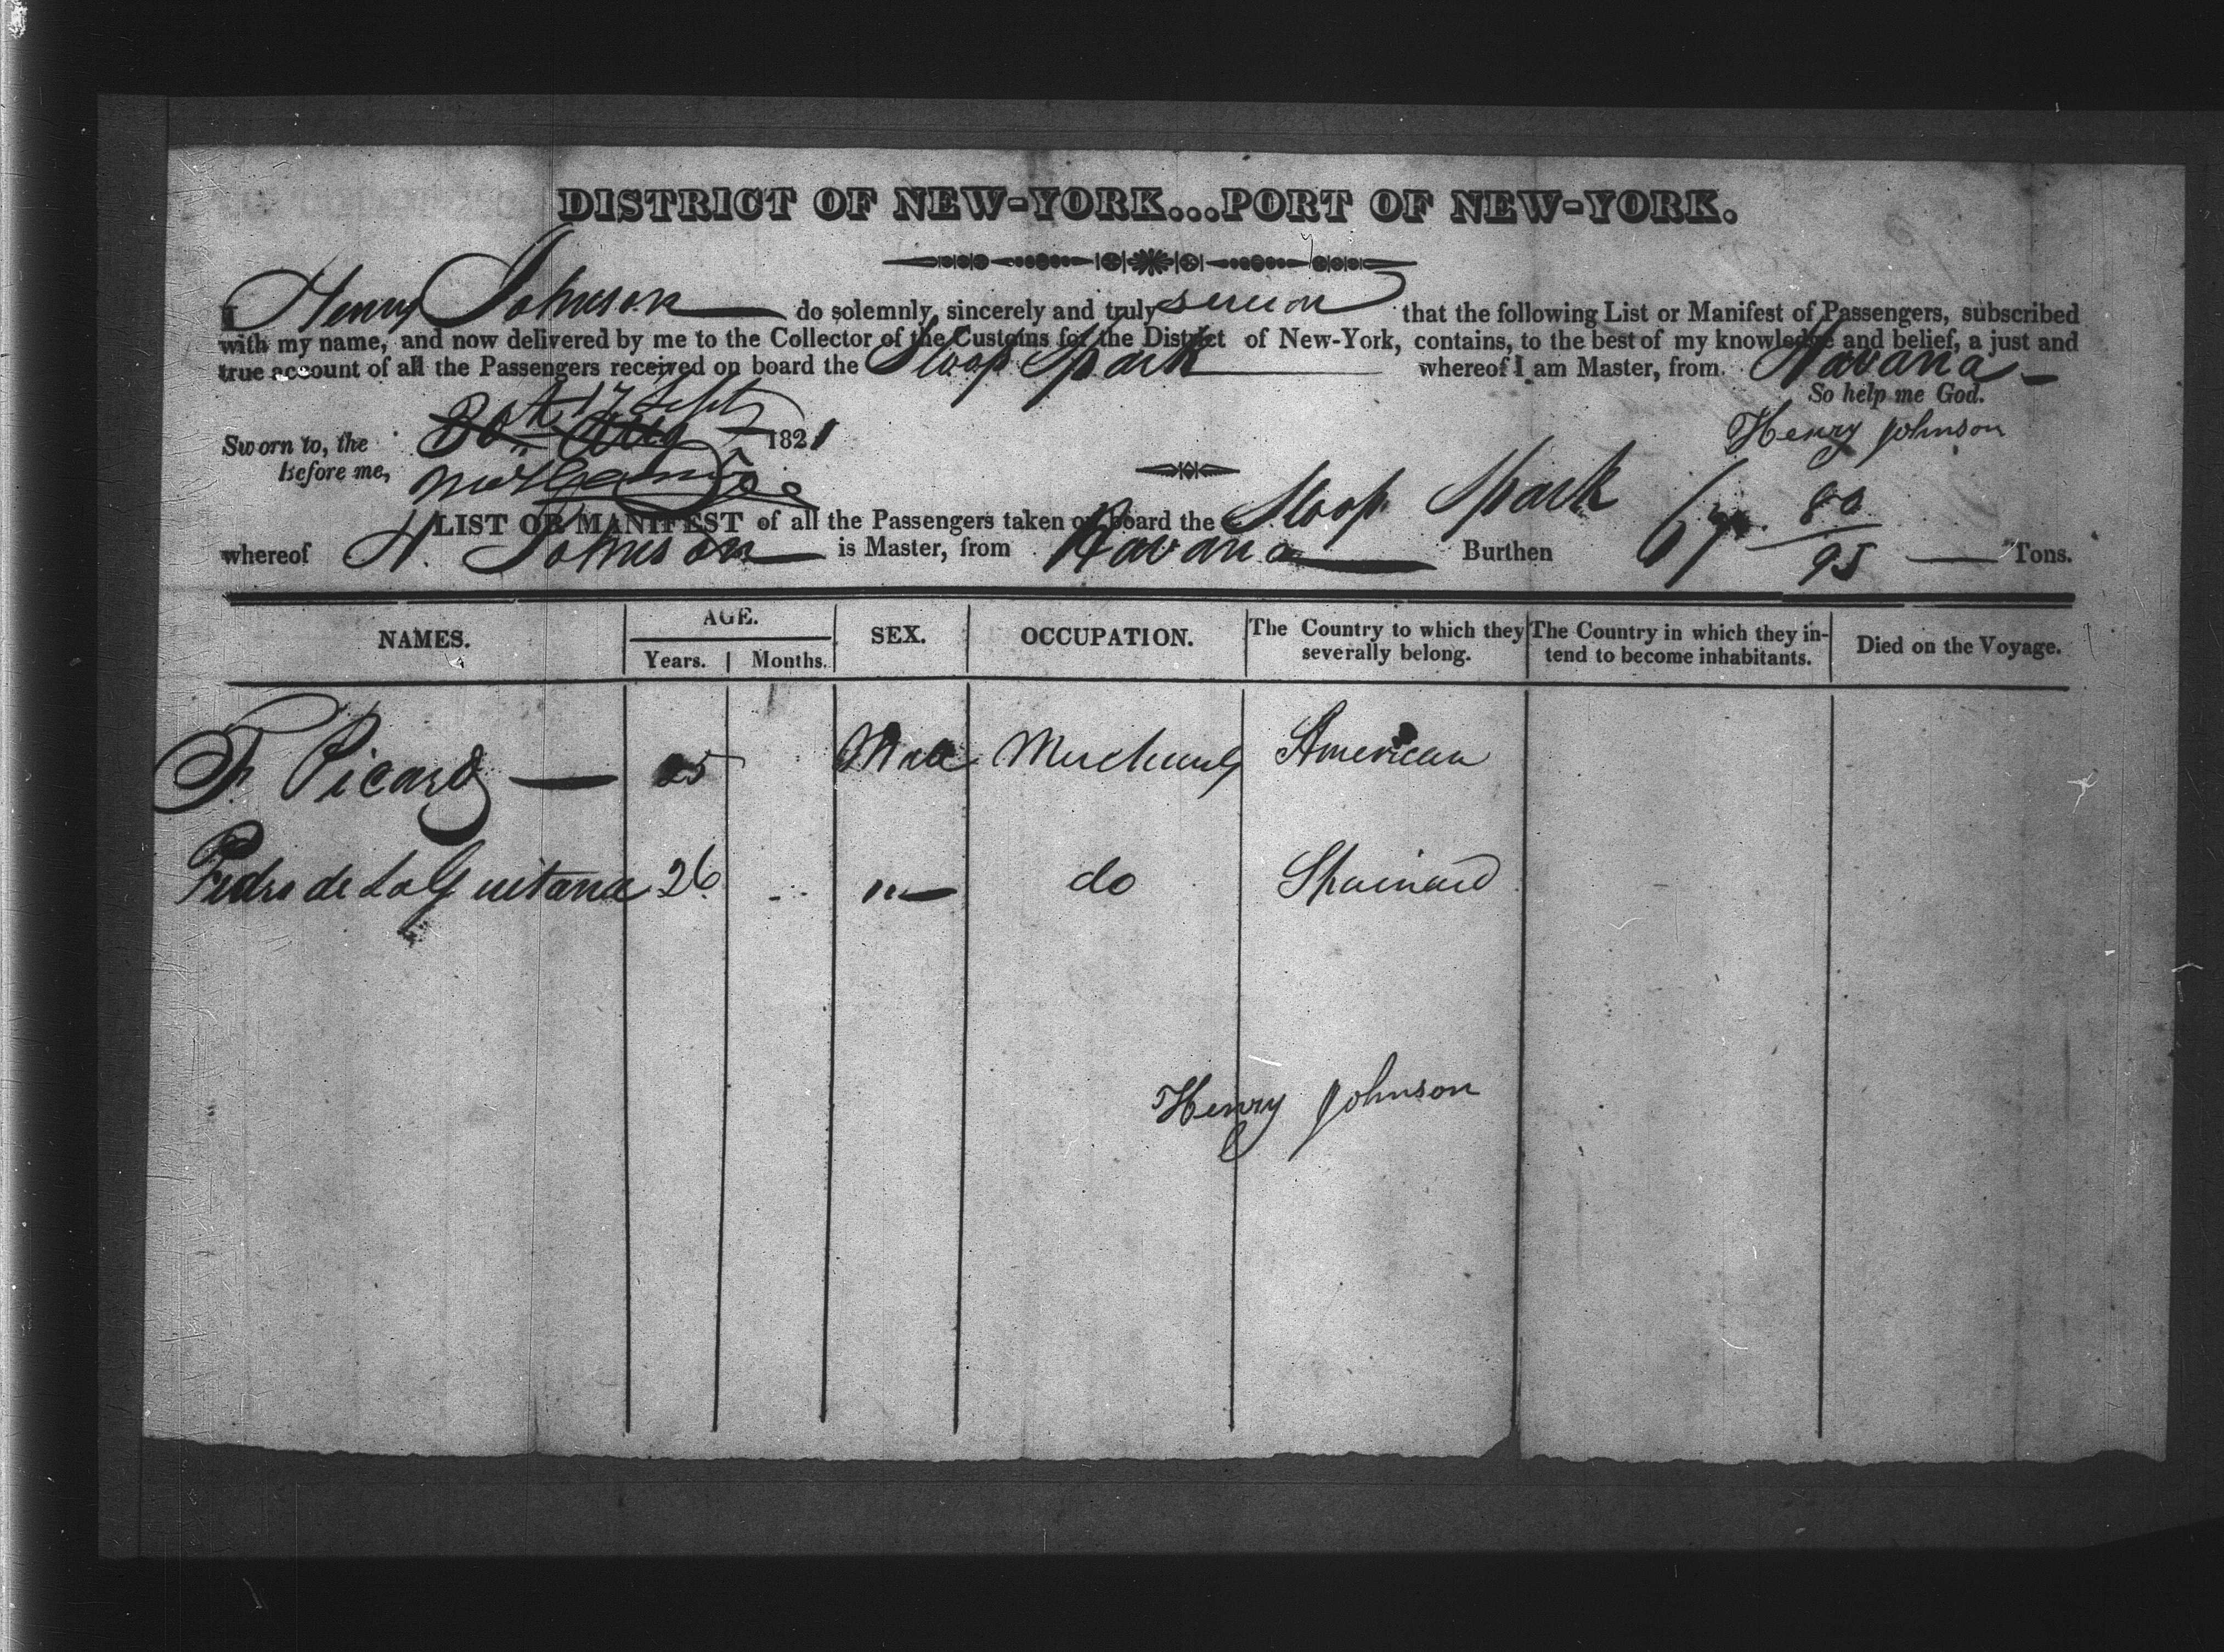 DISTRICT OF NEW-YORK...PORT OF NEW-YORK.
I Henry Johnson do solemnly, sincerely and truly swear that the following List or Manifest of Passengers, subscribed
with my name, and now delivered by me to the Collector of the Customs for the District of New-York, contains, to the best of my knowledge and belief, a just and
true account of all the Passengers received on board the Sloop Spark whereof I am Master, from Havana
So help me God.
17 Sept
Sworn to, the 30th Aug 1821 Henry Johnson
Before me,
LIST OR MANIFEST of all the Passengers taken on board the Sloop Spark
whereof H. Johnson is Master, from Havana Burthen 67 80/95 Tons.
NAMES. AGE. SEX. OCCUPATION. The Country to which they severally belong. The Country in which they intend to become inhabitants. Died on the Voyage.
Years. Months.
F. Picard 25 Male Merchant American
Pedro de La Quitana 26 do Spainard
Henry Johnson